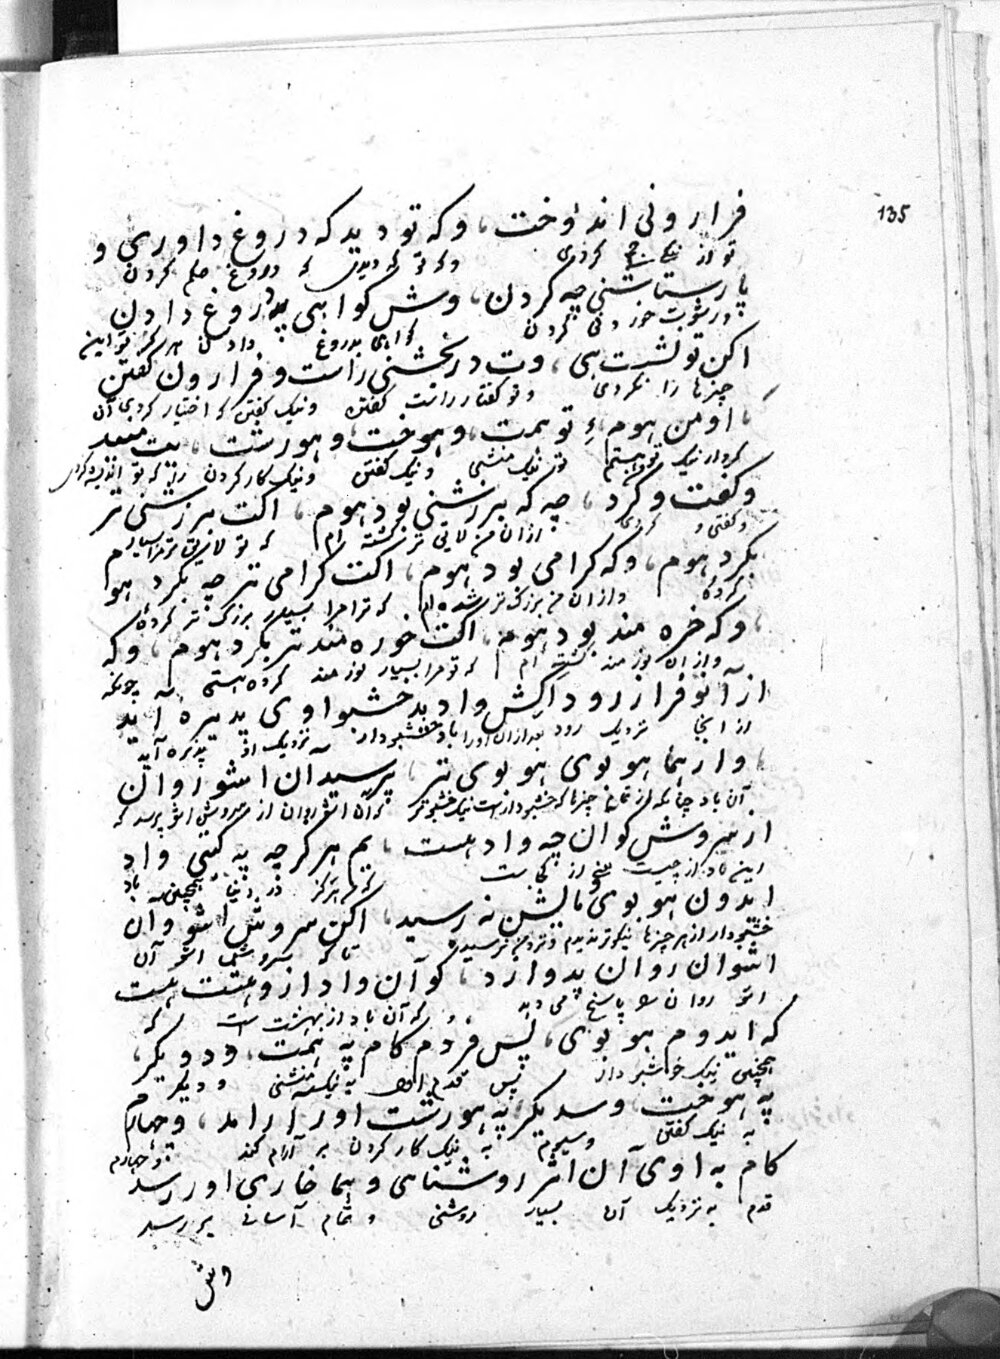 135
فرارونی اندوخت، وکه تو دید که دروغ داوری و
تو از کردی وکه تو که دیدی که دروغ حکم کردن
پارستاشنی چه کردن، وش کواهی په دروغ دادن
ورشوت خوردنی کردن کواهی بدروغ دادن هر کز تو این
اکن تو نشست هی، وت در بخشنی راست و فرارون کفتن
چیزها را نکردی وتو کفتار راست کفتن ونیک کفتن که اختیار کردی آن
، اومن هوم ء تو همت، وهوخت، وهورشت، یت منید
کردار نیک تو هستم تو نیک منشنی ونیک کفتن ونیک کار کردن
وکفت وکرد، چه که برزشنی بود هوم، اکت برزشنی تر
وکفتی و کردی ازان من لایق تر کشته ام که تو لایق تر مرا بسیار
بکرد هوم، وکه کرامی بود هوم، اکت کرامی تر چه بکرد هوم
کرده وازان من بزرک تر شده ام که ترا مرا بسیار بزرک تر کرده
، وکه خره مند بود هوم، اکت خوره مند تر بکرد هوم، وکه
وازان نوزمند کشته ام که تو مرا بسیار نوزمند کرده هستی چونکه
از آنو فراز رود اکش واد بد خشبو اوی پدیره آید
از آنجا نزدیک رود بعد ازان اورا باد خشبودار نزدیک او پذیره آید
، وار هما هو بوی هو بوی تر، پرسید آن اشو روان
آن باد چنانکه از تمام چیزها که خشبودار است نیک خشبوتر که آن اشو روان از سروش اشو پرسد که
از سروش کو ان چه واد هست، یم هرکز چه په کیتی واد
این باد از چیست و از کجاست که هرکز در دنیا همچنین باد
ایدون هو بوی مالشن نه رسید، اکن سروش اشو آن
خشبودار از هر چیزها نیکوتر ندیدم ونزد من نرسید تا که سروش اشو آن
اشوان روان پدوارد، کو آن واد از وهشت هست
اشو روان را پاسخ می دهد که آن باد از بهشت است که
که ایدوم هو بوی، پس فردم کام په همت، ودویکر،
همچنین نیک خوشبو دار پس قدم اول به نیک منشنی ودیکر
په هوخت، وسدیکر، په هورشت اور آرامد، وچهارم
به نیک کفتن وسیوم به نیک کار کردن بر آرام کند وچهارم
کام به اوی آن اثر روشناهی وهما خاری اور رسد
قدم به نزدیک آن بسیار روشنی وتمام آسانی بر رسد
وش